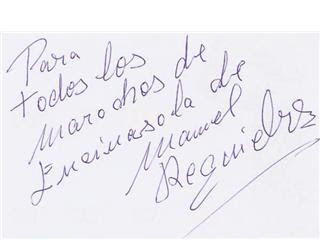 Para
todos los
marochos de
Encinasola de
Manuel
Requiebros